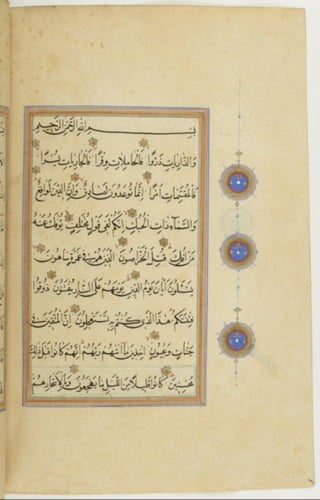 بسم الله الرحمن الرحيم
والذاريات ذروا فالحاملات وقرا فالجاريات يسرا
فالمقسمات امرا إنما توعدون لصادق وإن الدين لواقع
والسماء ذات الحبك إنكم لفي قول مختلف يؤفك عنه
من أفك قتل الخراصون الذين هم في غمرة ساهون
يسئلون أيان يوم الدين يوم هم على النار يفتنون ذوقوا
فتنتكم هذا الذي كنتم به تستعجلون إن المتقين في
جنات وعيون اخذين ما اتاهم ربهم إنهم كانوا قبل ذلك
محسنين كانوا قليلا من الليل ما يهجعون وبالأسحار هم